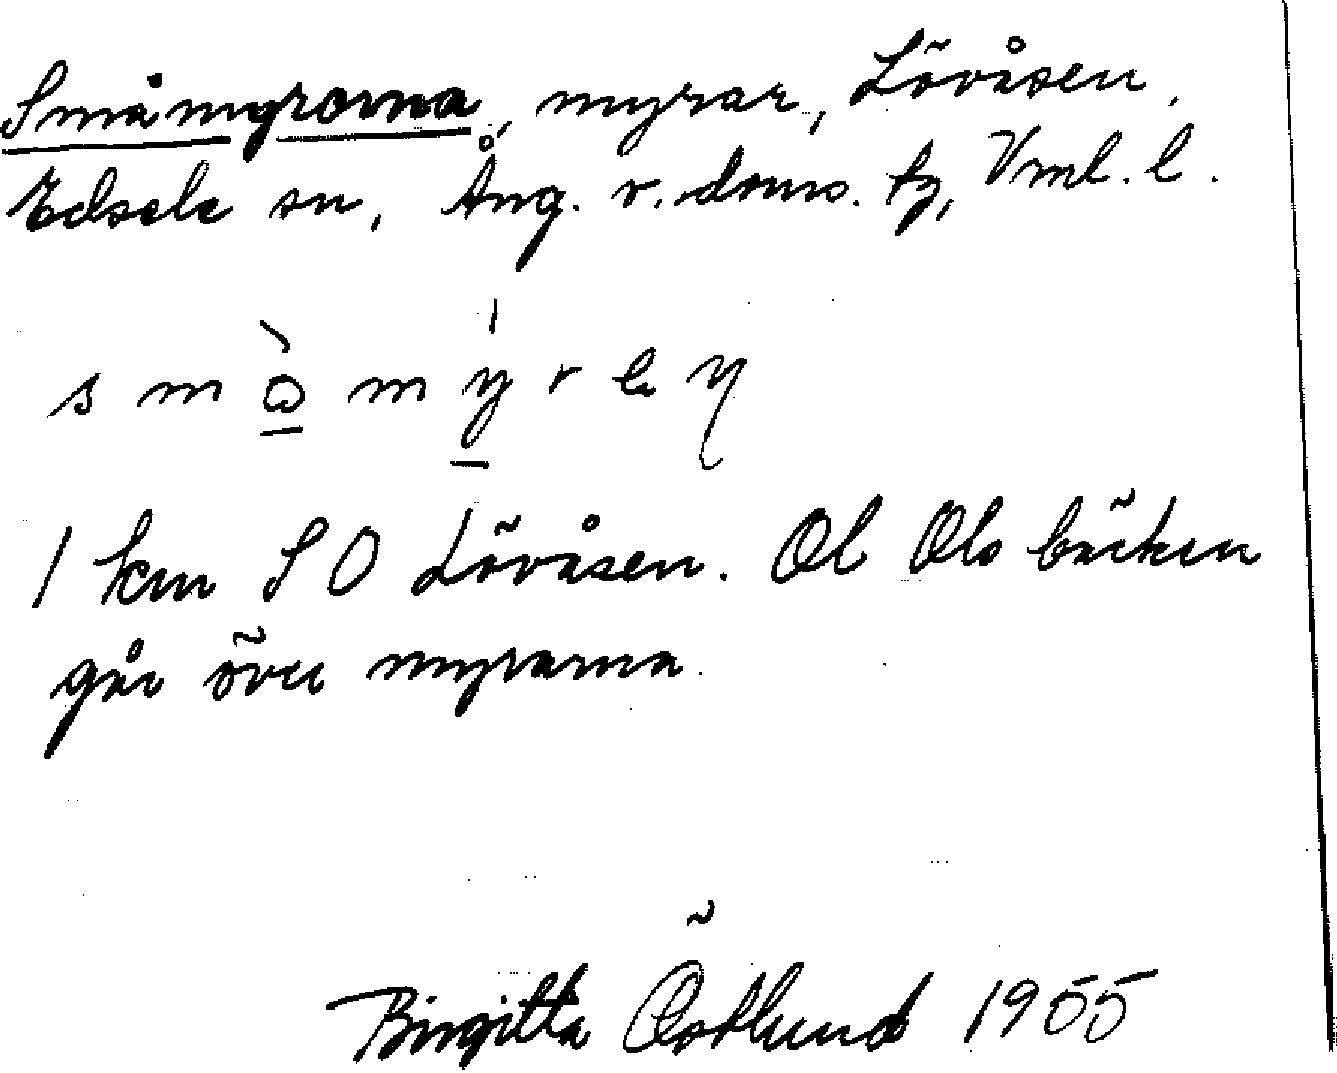 Småmyrorna, myrar, Lövåsen,
Edsele sn, Ång. v. doms. tg, Vml. l.
1 km SO Lövåsen. Ol Ols bäcken
går över myrarna.
Birgitta Östlund 1955